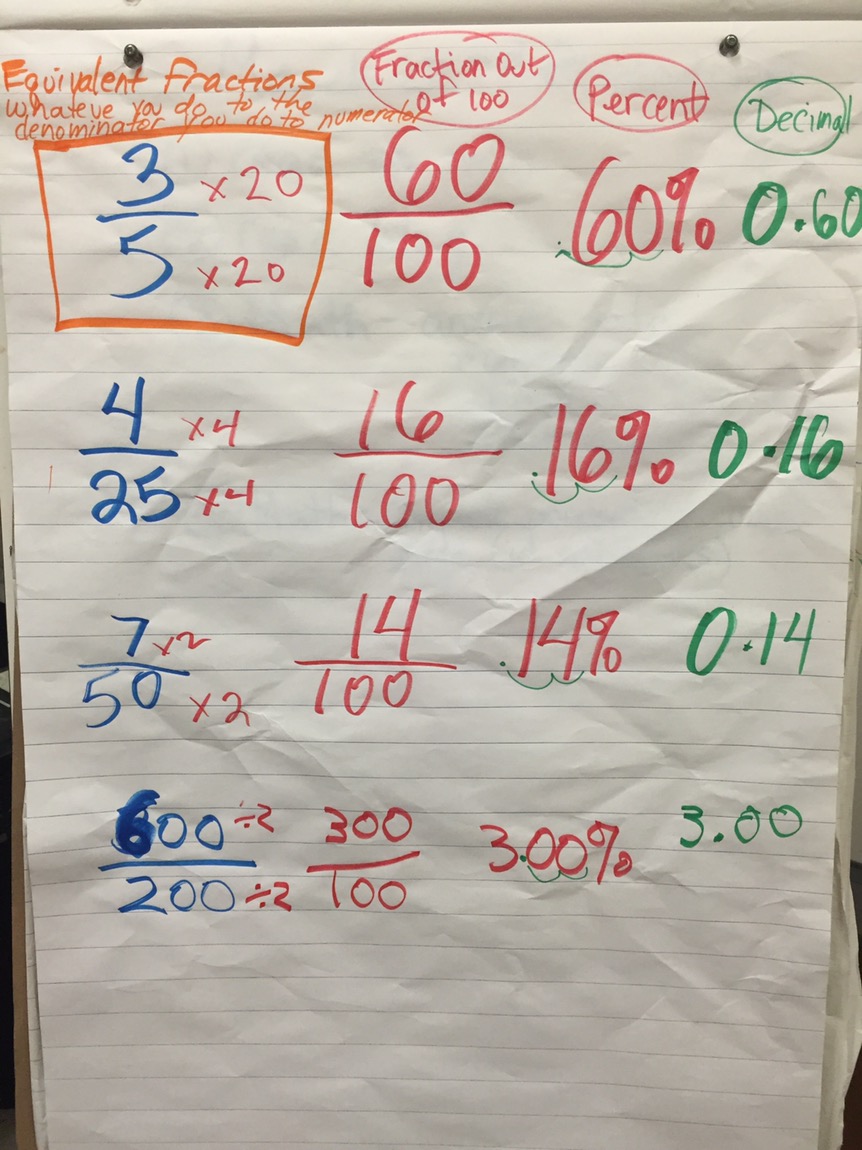 Equivalent Fractions
whateve you do to the
denominator you do to numerator
Fraction Out
of 100
Percent
Decimal
3 × 20
5 × 20
60
100
.60%
0.60
4 ×4
25 ×4
16
100
.16%
0.16
7 ×2
50 ×2
14
100
.14%
0.14
600 ÷2
200 ÷2
300
100
3.00%
3.00